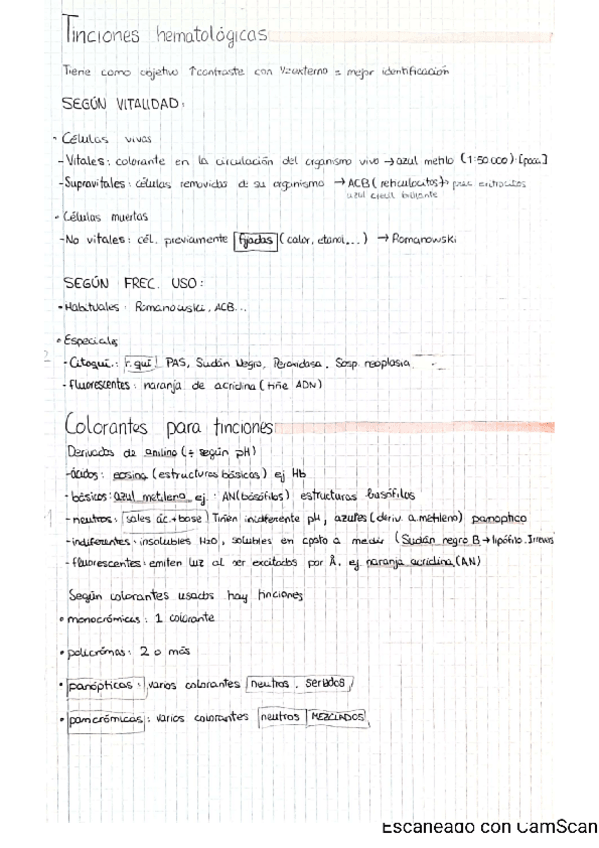 Tinciones hematológicas
Tiene como objetivo ↑contraste con = mejor identificación
SEGÚN VITALIDAD:
• Células vivas
- Vitales: colorante en la circulación del organismo vivo → azul metilo (1:50000)
- Supravitales: células removidas de su organismo → ACB (reticulocitos)
azul cresil brillante
• Células muertas
- No vitales: cél. previamente fijadas (calor, etanol...) → Romanowski
SEGÚN FREC. USO:
• Habituales: Romanowski, ACB...
• Especiales
2
- Citoquí.: r. quí PAS, Sudán Negro, Peroxidasa, Sosp. neoplasia
- fluorescentes: naranja de acridina (tiñe ADN)
Colorantes para tinciones
Derivados de anilina (÷ según pH)
- ácidos: eosina (estructuras básicas) ej Hb
- básicos: azul metileno ej.: AN (basófilos) estructuras basófilas
1
- neutros: sales ác. + base Tiñen indiferente pH, azures (deriv. a. metileno) panoptico
- indiferentes: insolubles H₂O, solubles en a medir (Sudán negro B → lipófilo.
- fluorescentes: emiten luz al ser excitados por λ. ej naranja acridina (AN)
Según colorantes usados, hay tinciones
• monocrómicas: 1 colorante
• policrómas: 2 o más
• panópticas: varios colorantes neutros, seriados
• pancrómicas: varios colorantes neutros MEZCLADOS
Escaneado con CamScan